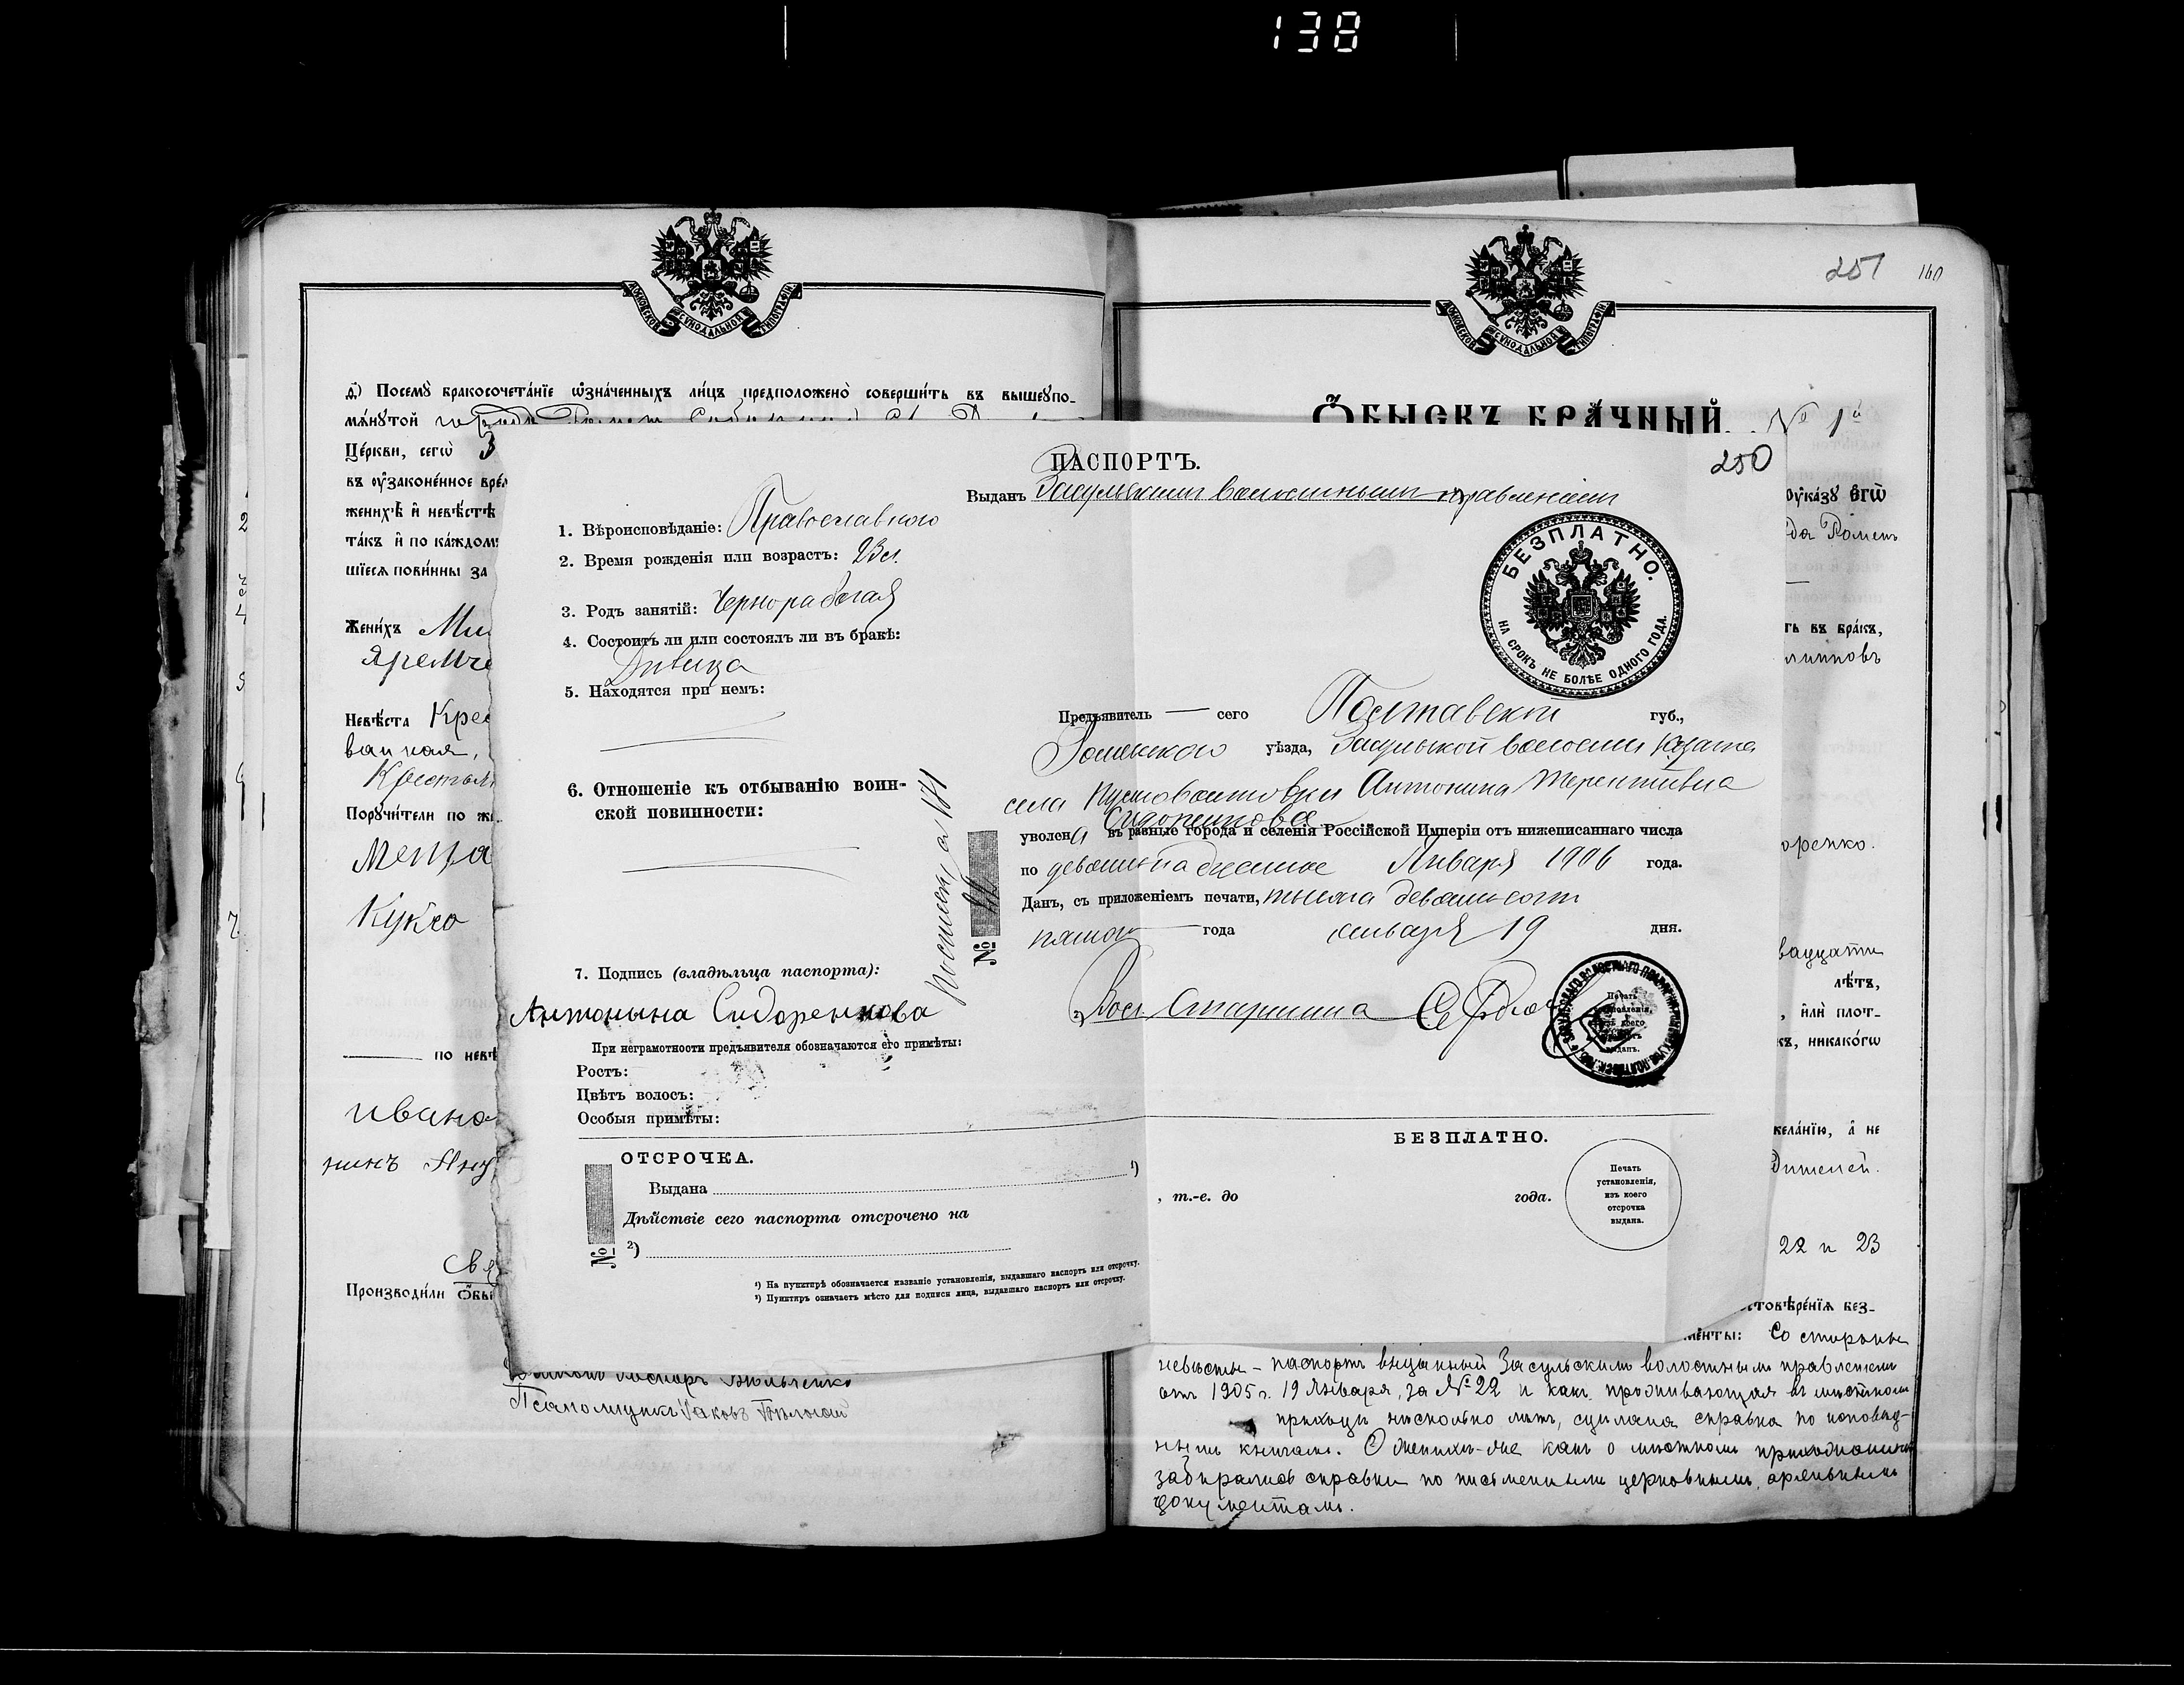 138
МОСКОВСКОЙ СѴНОДАЛЬНОЙ ТИПОГРАФІИ.
д҃) Посемꙋ̀ бракосочета́нїе ѡ҆зна́ченныхъ ли́цъ предположено̀ соверши́ть въ вышеꙋпо-
мѧ́нꙋтой города Ромен
Це́ркви, сегѡ̀
въ ᲂу҆законе́нное вре́
женихѣ̀ и҆ невѣ́стѣ
та́къ и҆ по ка́ждом
шїесѧ пови́нны за
Жени́хъ Ми
Яремче
Невѣ́ста Крес
ванная,
Крестьян
Порꙋчи́тели по же
Мещан
Кукso
по невѣ
ивано
нинъ
Производи́ли ѡ҆бы
Псаломщикъ Яковъ
2
3
4
5
6
7
ПАСПОРТЪ.
250
Выданъ Засульскимъ волостнымъ правленіем
1. Вѣроисповѣданіе: Православного
2. Время рожденія или возрастъ: 23 л.
3. Родъ занятій: Чернорабочая
4. Состоитъ ли или состоялъ ли въ бракѣ:
Дѣвица
5. Находятся при немъ:
6. Отношеніе къ отбыванію воин-
ской повинности:
7. Подпись (владѣльца паспорта):
Антонына Сидоренкова
При неграмотности предъявителя обозначаются его примѣты:
Ростъ:
Цвѣтъ волосъ:
Особыя примѣты:
№ 22
БЕЗПЛАТНО.
НА СРОКЪ НЕ БОЛѢЕ ОДНОГО ГОДА.
Предъявитель — сего Полтавской губ.,
Роменского уѣзда, Засульской волости казачка
села Пустовойтовки Антонина Терентіевна
Сидоренкова
уволена въ разные города и селенія Россійской Имперіи отъ нижеписаннаго числа
по девятнадцатое Января 1906 года.
Данъ, съ приложеніемъ печати, тысяча девятьсот
пятого года января 19 дня.
Вол. Старшина Сердюк
Печать установленія, изъ коего паспортъ выданъ.
ОТСРОЧКА.
БЕЗПЛАТНО.
Выдана ¹)
Дѣйствіе сего паспорта отсрочено на , т.-е. до года.
№ ²)
Печать
установленія,
изъ коего
отсрочка
выдана.
¹) На пунктирѣ обозначается названіе установленія, выдавшаго паспортъ или отсрочку.
²) Пунктиръ означаетъ мѣсто для подписи лица, выдавшаго паспортъ или отсрочку.
251 160
МОСКОВСКОЙ СѴНОДАЛЬНОЙ ТИПОГРАФІИ.
Ѻ҆БЫСКЪ БРА́ЧНЫЙ. № 1й
ᲂу҆ка́зꙋ Е҆гѡ̀
да Ромен
ть въ бра́къ,
липповъ
оренко.
вадцати
лѣ́тъ,
, и҆лѝ плот-
къ, никако́гѡ
жела́нїю, а҆ не
дителей.
22 и 23
стовѣре́нїѧ без-
менты: Со стороны
невѣсты – паспортъ выданный Засульскимъ волостнымъ правленіем
отъ 1905 г. 19 Января, за № 22 и как проживающая въ мѣстном
приходѣ нѣсколько лѣтъ, сдѣлана справка по исповѣд-
нымъ книгамъ. О женихѣ-же какъ о мѣстномъ прихожанинѣ
забирались справки по письменнымъ церковнымъ архивнымъ
документамъ.